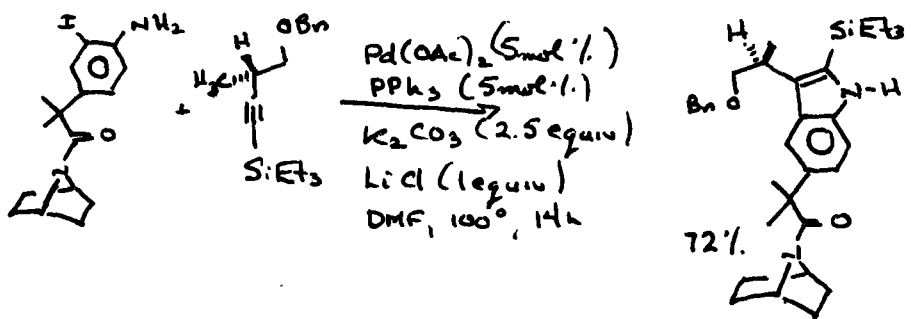 I
NH₂
O
N
+
OBn
H
H₃C
SiEt₃
Pd(OAc)₂ (5mol%)
PPh₃ (5mol%)
K₂CO₃ (2.5 equiv)
LiCl (1equiv)
DMF, 100°, 14h
H
SiEt₃
N-H
Bn
O
O
N
72%